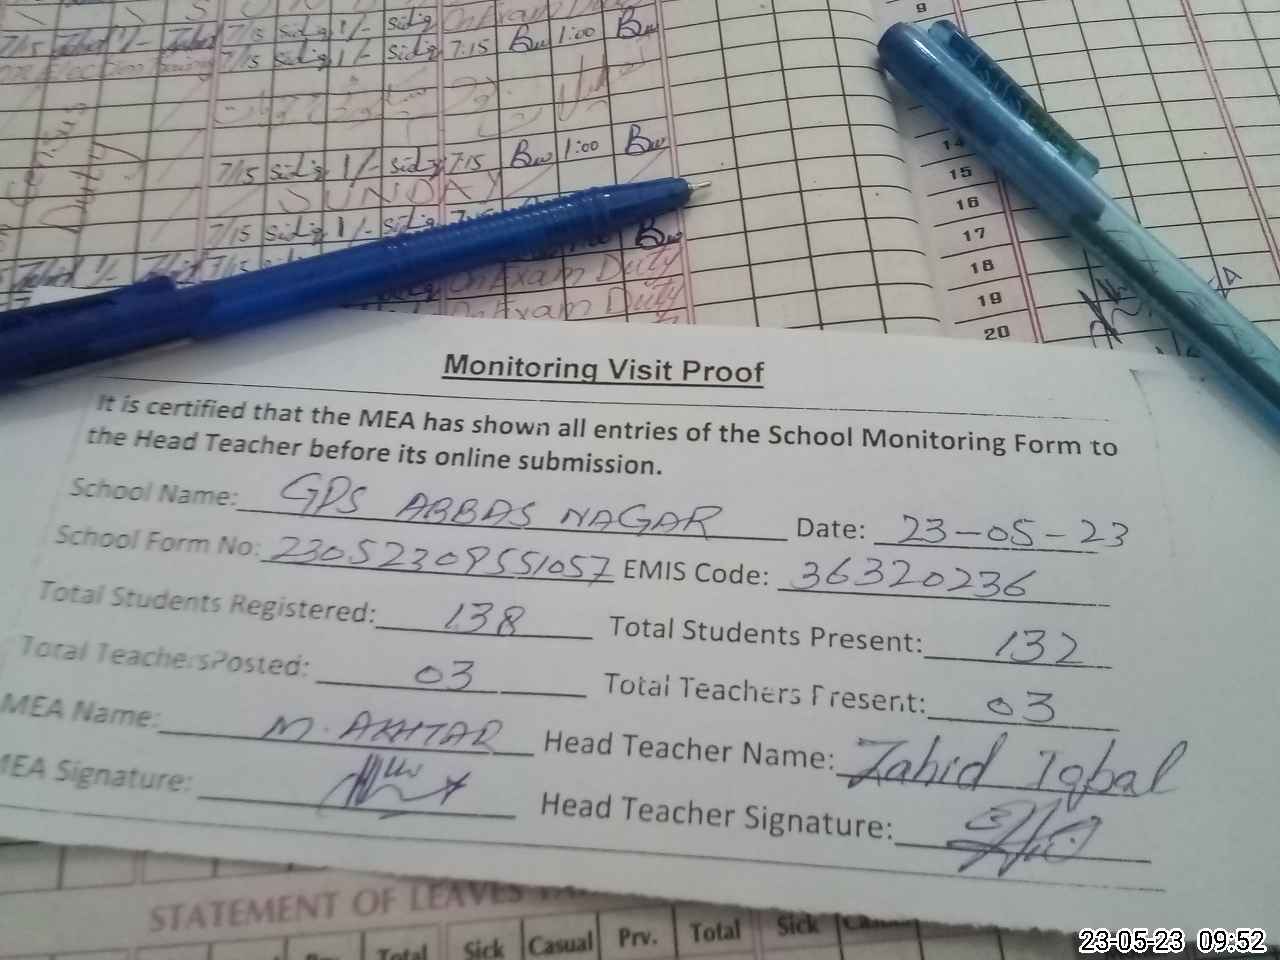 7/15 Sidiq 1/- Sidiq On Exam Duty
7/15 Zahid 1/- Zahid 7/15 Sidiq 1/- Sidiq 7:15 1:00
7/15 Sidiq 1/- Sidiq 7:15 1:00
SUNDAY
7/15 Sidiq 1/- Sidiq
Zahid 1/- Zahid 7/15 Sidiq
On Exam Duty
On Exam Duty
Duty
9
14
15
16
17
18
19
20
Monitoring Visit Proof
It is certified that the MEA has shown all entries of the School Monitoring Form to
the Head Teacher before its online submission.
School Name: GPS ABBAS NAGAR Date: 23-05-23
School Form No: 23052309551057 EMIS Code: 36320236
Total Students Registered: 138 Total Students Present: 132
Total Teachers Posted: 03 Total Teachers Present: 03
MEA Name: M. AKHTAR Head Teacher Name: Zahid Iqbal
MEA Signature: Head Teacher Signature:
STATEMENT OF LEAVES
Total Sick Casual Prv. Total Sick Casual
23-05-23 09:52